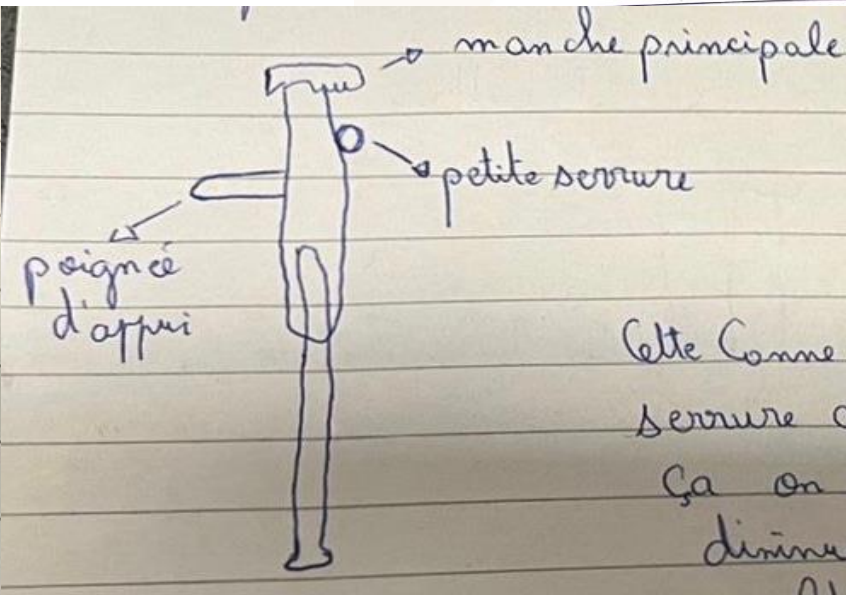 manche principale
petite serrure
poignée
d'appui
Cette Canne
serrure
Ça on